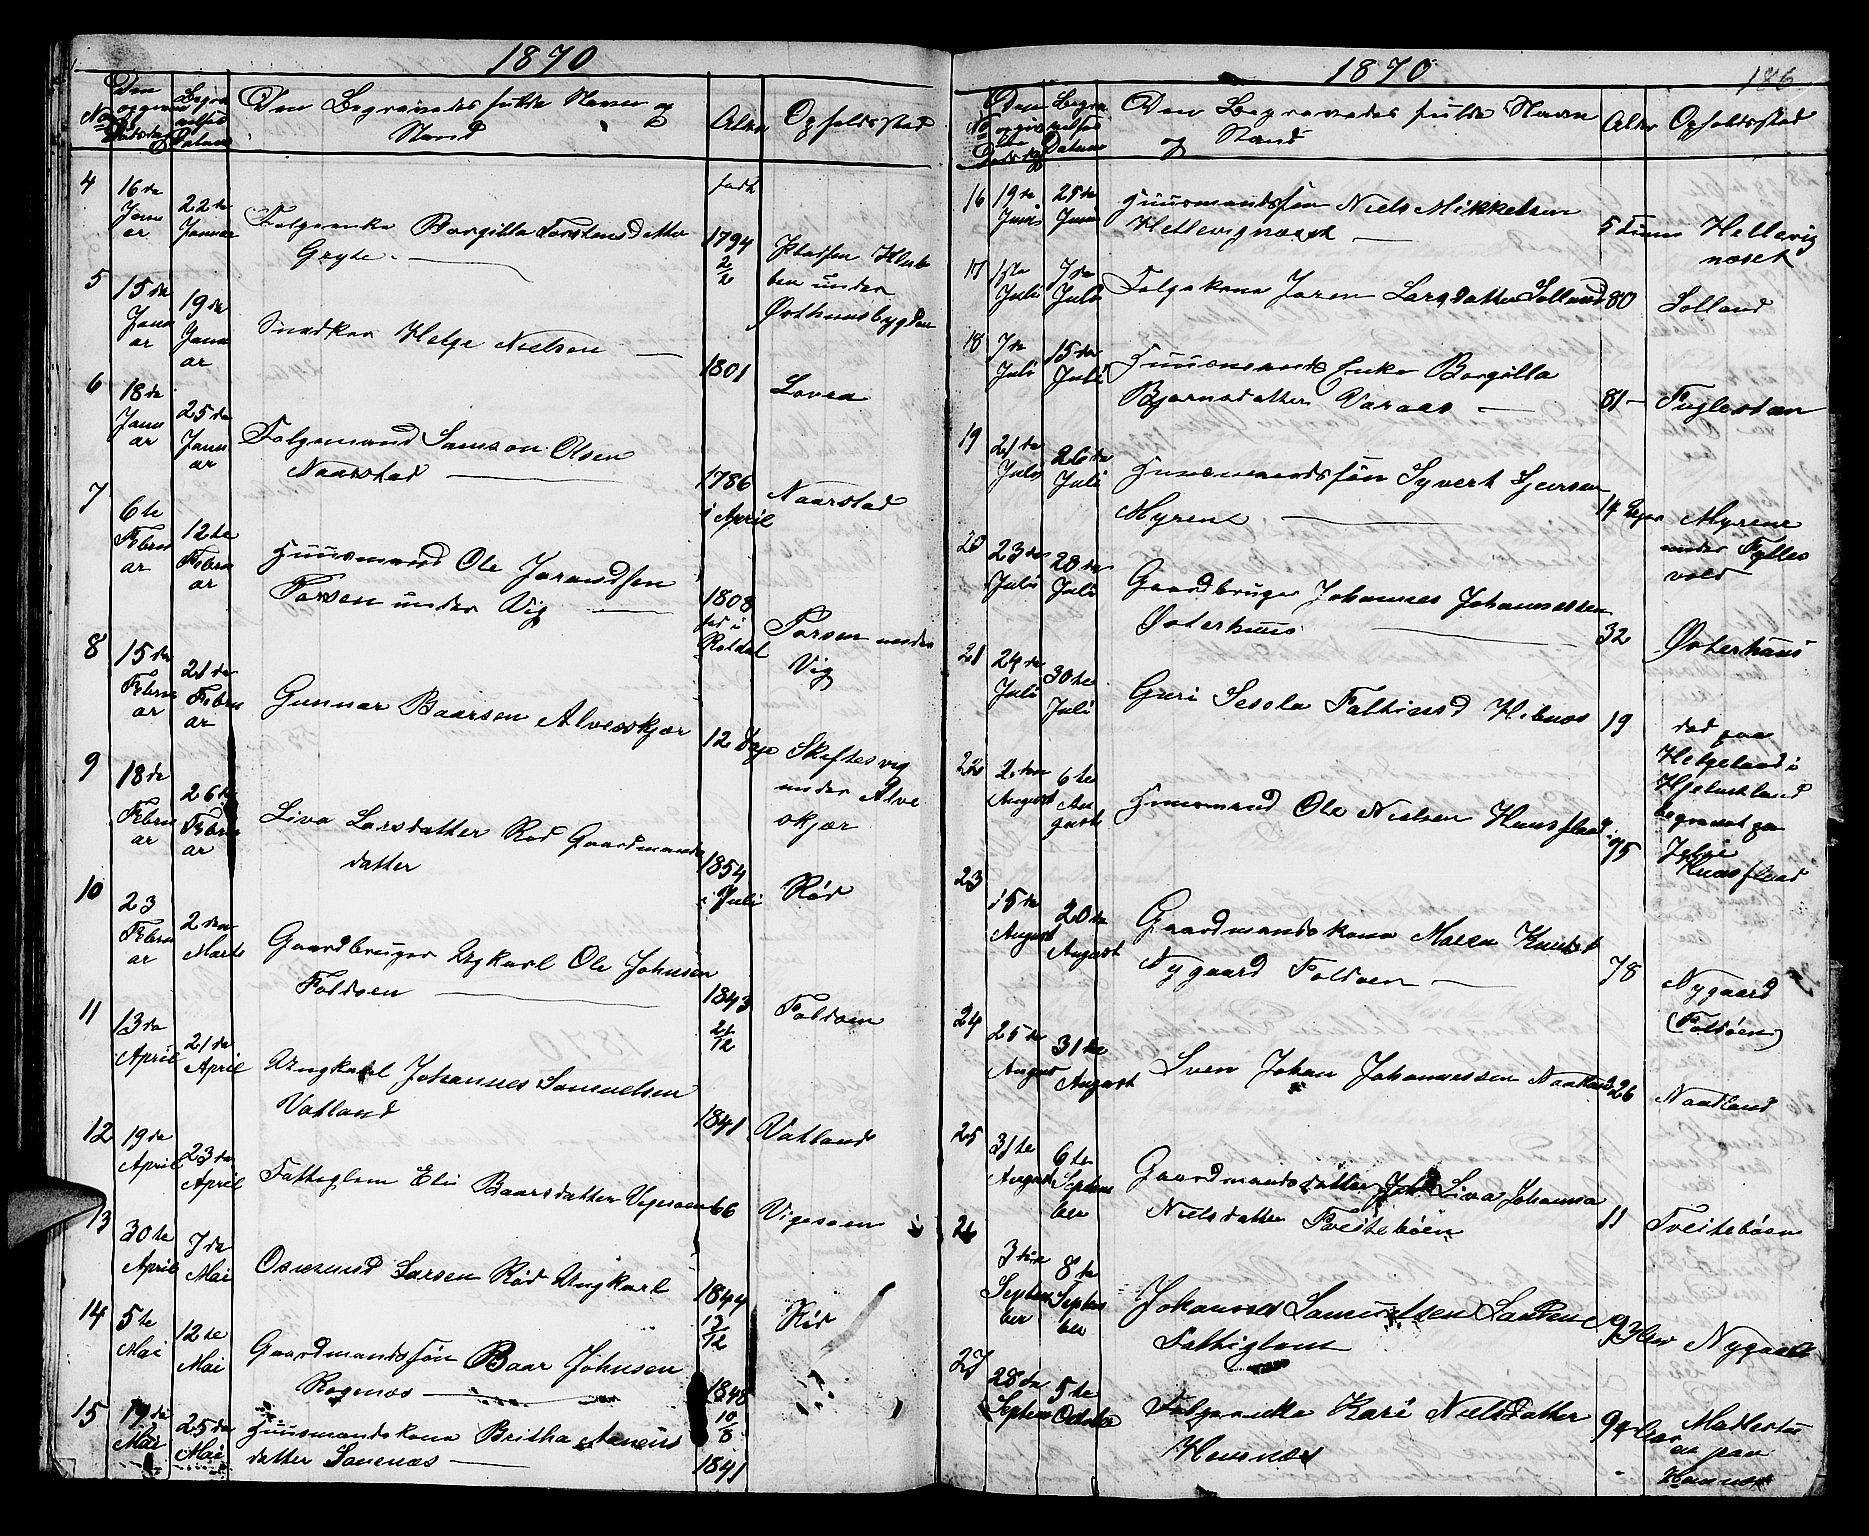 1870
No
Den opgivne Dødsdag
Begravelses Datum
Den Begravedes fulde Navn og
Stand
Alder
Opholdssted
4
16da Januar
22da Januar
Folgeenke Borgilla Torstensdatter
født 1794 2/2
Pladsen
under
5
15da Januar
19da Januar
Snedker Helge Nielsen
1801
Lovra
6
18da Januar
25da Januar
Folgemand Samson Olsen
Naarstad
1786 i April
Naarstad
7
6te Februar
12te Februar
Huusmand Ole Jorandsen
Porsen under Vig
1808 fød i Roldal
Porsen under
Vig
8
15da Februar
21da Februar
Gunnar Baarsen Alveskjær
12 Dage
Skeftesvig
under Alve
skjær
9
18da Februar
26da Februar
Liva Larsdatter Rød Gaardmands
datter
1854 i Juli
Rød
10
23 Februar
2den Marts
Gaardbruger Ungkarl Ole Johnsen
Foldøen
1843 21/12
Foldøen
11
13da April
21da April
Ungkarl Johannes Samuelsen
Vatland
1841
Vatland
12
19da April
23da April
Fattiglem Eli Baarsdatter Vigesaen
66
Vigesaen
13
30te April
7da Mai
Osmund Larsen Rød Ungkarl
1844 13/12
Rød
14
5te Mai
12te Mai
Gaardmandssøn Baar Johnsen
1848 10/8
15
19da Mai
25da Mai
Huusmandskona Britha
datter
1841
1870
186
No
Den opgivne Dødsdag
Begravelses Datum
Den Begravedes fulde Navn
og Stand
Alder
Opholdssted
16
19da Juni
25da Juni
Huusmandssøn Niels Mikkelsen
Hellevignæset
5 Timer
Hellevig
næset
17
1ste Juli
7da Juli
Folgekona Joren Larsdatter Lolland
80
Lolland
18
7da Juli
15da Juli
Huusmands Enke Borgilla
Bjørnsdatter Varaas
81
Fuglestøen
19
21da Juli
26da Juli
Huusmandssøn Syvert
Myrene
14 Dager
Myrene
under
20
23da Juli
28da Juli
Gaardbruger Johannes Johannessen
Østerhuus
32
Østerhuus
21
24da Juli
30te Juli
Guri Sesela Hebnes
19
død paa
Helgeland i
Hjelmeland
begravet pa
Jelse
22
2den August
6te August
Huusmand Ole Nielsen Kuusflaad
75
Kuusflaad
23
15da August
20da August
Gaardmandskona Maren Knutsd
Nygaard Foldøen
78
Nygaard
(Foldøen)
24
25da August
31da August
Sven Johan Johannessen Naadland
26
Naadland
25
31te August
6te September
Gaardmandsdatter Liva Johanna
Nielsdatter Tveitebøen
11
Tveitebøen
26
3die September
8da September
Johannes Samuelsen
Fattiglem
93
Nygaard
27
28da September
5te October
Folgeenke Kari Nielsdatter
94
paa